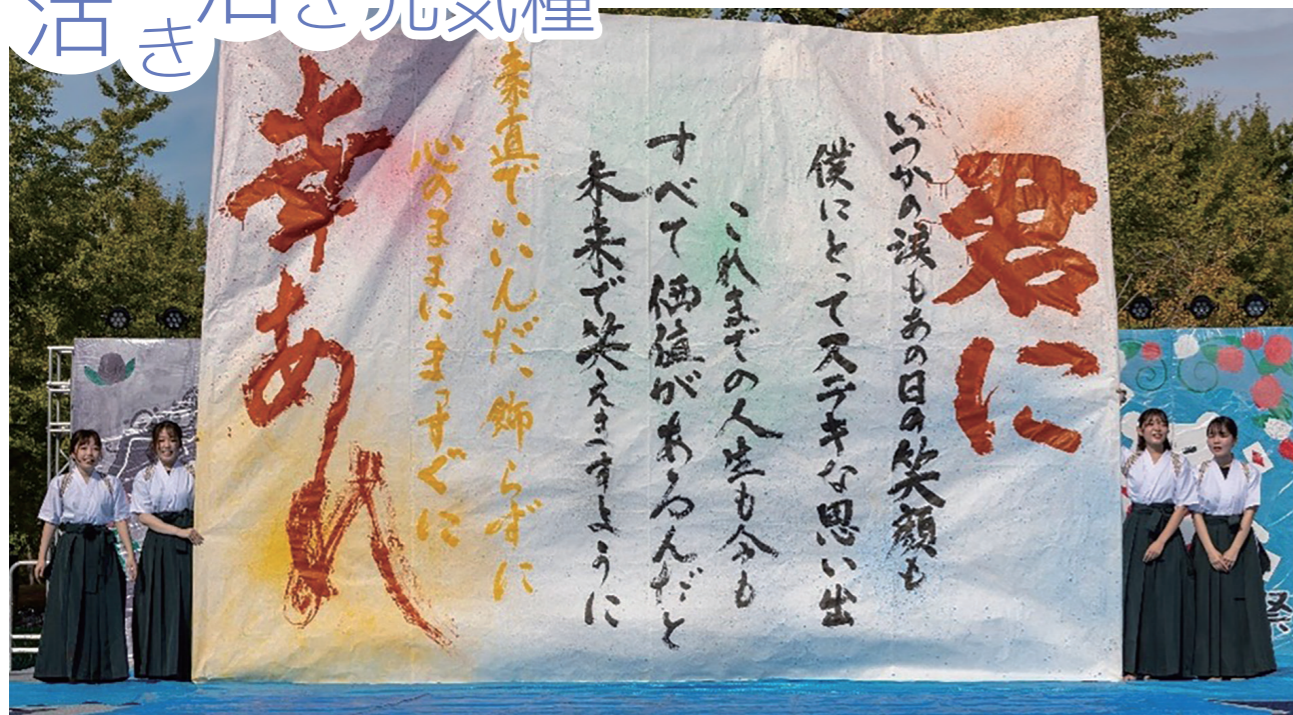 活き活き元気種
君に
いつかの涙もあの日の笑顔も
僕にとってステキな思い出
これまでの人生も今も
すべて価値があるんだと
未来で笑えますように
素直でいいんだ、飾らずに
心のままにまっすぐに
幸あれ
祭